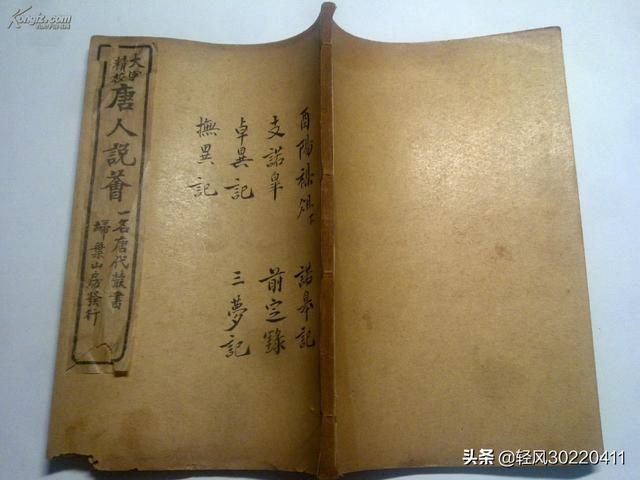 Kongfz.com
酉陽雜俎下 諾皋記
支諾皋 前定錄
卓異記 三夢記
撫異記
大字
精校
唐人說薈
一名唐代叢書
掃葉山房發行
头条 @轻风30220411